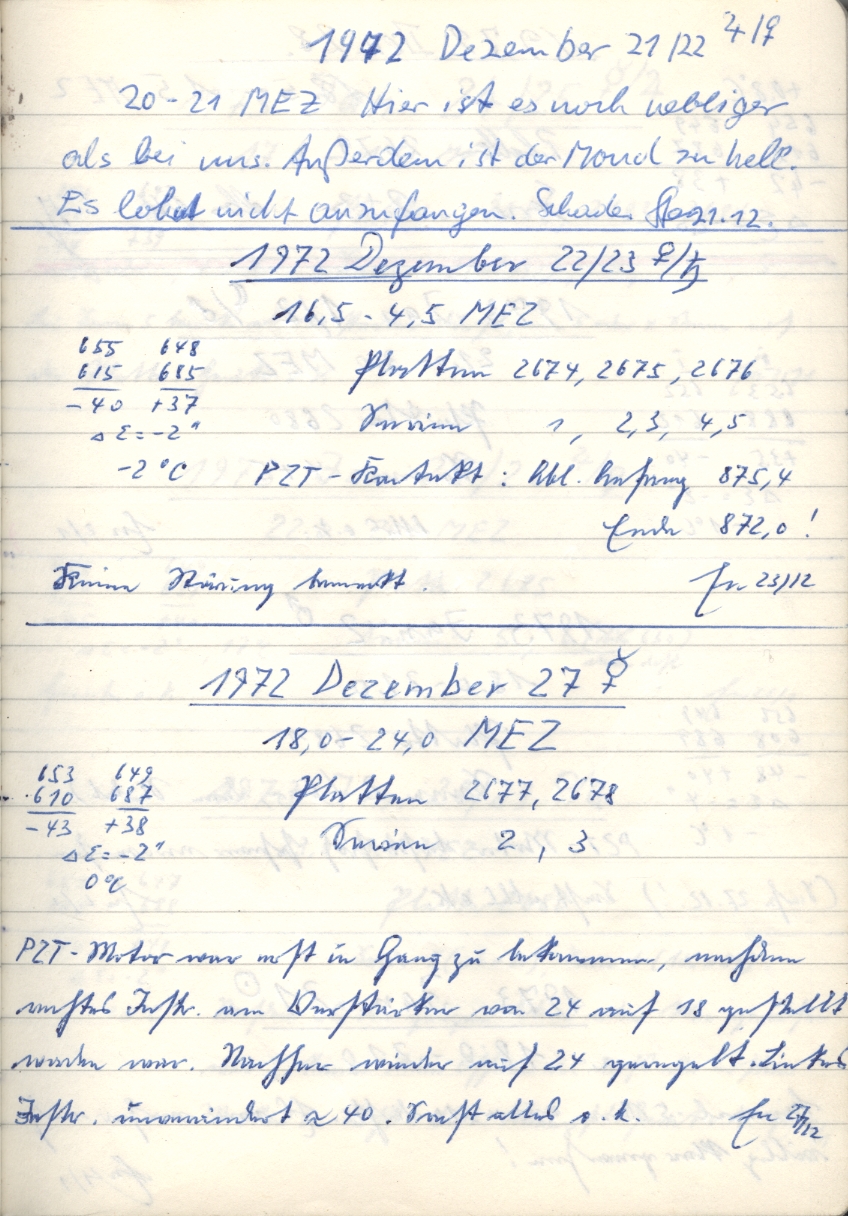 1972 Dezember 21/22 ♃/♀
20-21 MEZ Hier ist es noch nebliger
als bei uns. Außerdem ist der Mond zu hell.
Es lohnt nicht anzufangen. Schade. 21.12.
1972 Dezember 22/23 ♀/♄
16,5 - 4,5 MEZ
655 648
615 685
-40 +37
Δ Σ = -2"
-2 °C
Platten 2674, 2675, 2676
Serien 1, 2,3, 4,5
PZT-Kontakt: Abl. Anfang 875,4
Ende 872,0!
Keine Störung bemerkt. 23/12
1972 Dezember 27 ☿
18,0 - 24,0 MEZ
653 649
610 687
-43 +38
Δ Σ = -2"
0 °C
Platten 2677, 2678
Serien 2, 3
PZT-Motor war erst in Gang zu bekommen, nachdem
rechtes Instr. am Verstärker von 24 auf 18 gestellt
worden war. Nachher wieder auf 24 geregelt. Linkes
Instr. unverändert ≈ 40. Sonst alles o.k. 27/12